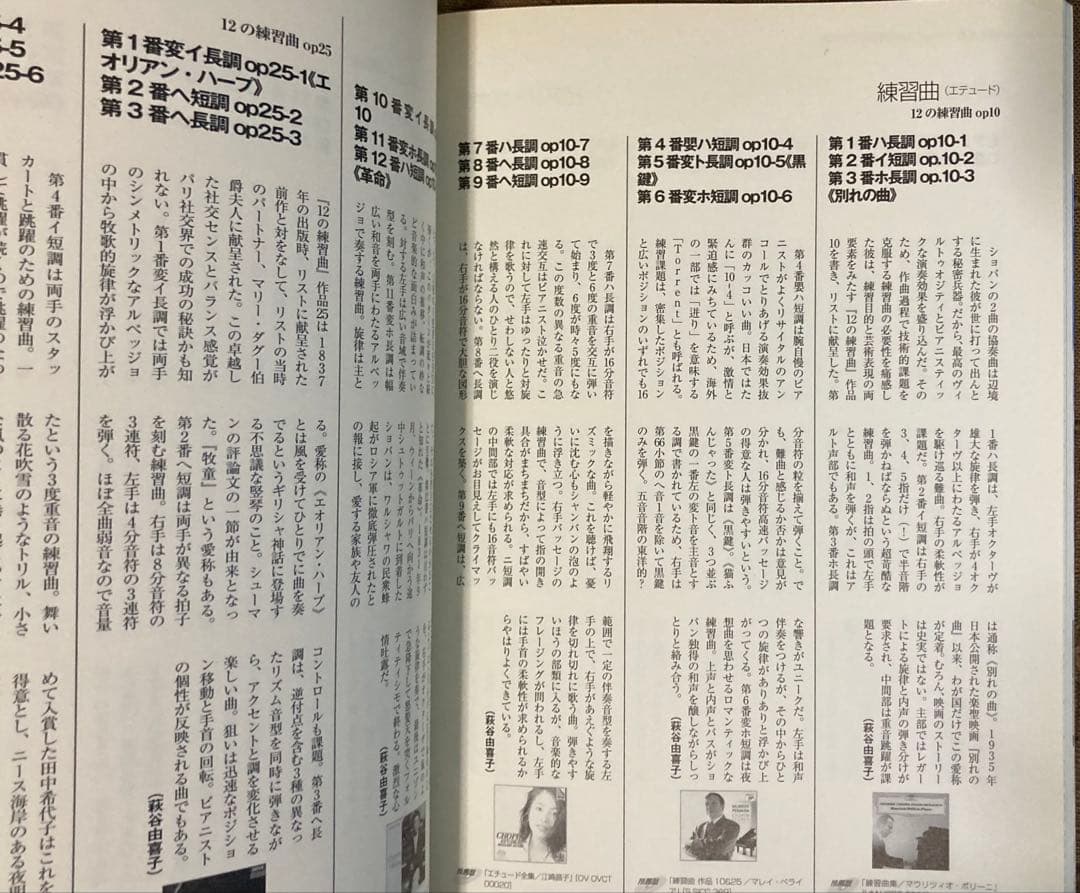 練習曲(エテュード)
12の練習曲 op10
第1番ハ長調 op10-1
第2番イ短調 op.10-2
第3番ホ長調 op.10-3
《別れの曲》
ショパンの2曲の協奏曲は辺境
に生まれた彼が世に打って出んと
する秘密兵器。だから、最高のヴィ
ルトゥオジティとピアニスティッ
クな演奏効果を盛り込んだ。その
ため、作曲過程で技術的課題を
克服する練習曲の必要性を痛感し
た彼は、練習目的と芸術表現の両
要素をみたす「12の練習曲」作品
10を書き、リストに献呈した。第
1番ハ長調は、左手オクターヴが
雄大な旋律を弾き、右手が4オク
ターヴ以上にわたるアルペッジョ
を駆け巡る難曲。右手の柔軟性が
課題だ。第2番イ短調は右手の
3、4、5指だけ(!)で半音階
を弾かねばならぬという超苛酷な
練習曲。1、2指は拍の頭で左手
とともに和声を弾くが、これはア
ルト声部でもある。第3番ホ長調
は通称《別れの曲》。1935年
日本公開された楽聖映画『別れの
曲』以来、わが国だけでこの愛称
が定着。むろん、映画のストーリー
は史実ではない。主部ではレガー
トによる旋律と内声の弾き分けが
要求され、中間部は重音跳躍が課
題となる。
(萩谷由喜子)
推薦盤「練習曲集/マウリツィオ・ポリーニ」
第4番嬰ハ短調 op10-4
第5番変ト長調 op10-5《黒
鍵》
第6番変ホ短調 op10-6
第4番嬰ハ短調は腕自慢のピア
ニストがよくリサイタルのアン
コールでとりあげる演奏効果抜
群のカッコいい曲。日本ではた
んに「10-4」と呼ぶが、激情と
緊迫感にみちているため、海外
の一部では「迸り」を意味する
「Torrent」とも呼ばれる。
練習課題は、密集したポジション
と広いポジションのいずれでも16
分音符の粒を揃えて弾くこと。で
も、難曲と感じるか否かは意見が
分かれ、16分音符高速パッセージ
の得意な人は弾きやすいという。
第5番変ト長調は《黒鍵》。《猫ふ
んじゃった》と同じく、3つ並ぶ
黒鍵の一番左の変ト音を主音とす
る調で書かれているため、右手は
第66小節のヘ音1音を除いて黒鍵
のみを弾く。五音音階の東洋的?
な響きがユニークだ。左手は和声
伴奏をつけるが、その中からひと
つの旋律がありありと浮かび上
がってくる。第6番変ホ短調は夜
想曲を思わせるロマンティックな
練習曲。上声と内声とバスがショ
パン独得の和声を醸しながらしっ
とりと絡み合う。
(萩谷由喜子)
推薦盤「練習曲 作品10&25/マレイ・ペライ
第7番ハ長調 op10-7
第8番ヘ長調 op10-8
第9番ヘ短調 op10-9
第7番ハ長調は右手が16分音符
で3度と6度の重音を交互に弾い
て始まり、6度が時々5度にもな
る。この度数の異なる重音の急
速交互はピアニスト泣かせだ。こ
れに対して左手はゆったりと対旋
律を歌うので、せわしない人と悠
然と構える人のひとり二役を演じ
なければならない。第8番ヘ長調
は、右手が16分音符で大胆な図形
を描きながら軽やかに飛翔するリ
ズミックな曲。これを聴けば、憂
いに沈む心もシャンパンの泡のよ
うに浮き立つ。右手パッセージの
練習曲で、音型によって指の開き
具合がまちまちだから、すばやい
柔軟な対応が求められる。ニ短調
の中間部では左手にも16音符パッ
セージがお目見えしてクライマッ
クスを築く。第9番ヘ短調は、広
範囲で一定の伴奏音型を奏する左
手の上で、右手があえぐような旋
律を切れ切れに歌う曲。弾きやす
いほうの部類に入るが、音楽的な
フレージングが問われるし、左手
には手首の柔軟性が求められるか
らやはりよくできている。
(萩谷由喜子)
推薦盤「エチュード全集/江崎昌子」[OV OVCT
00020]
第10番変イ長調
10
第11番変ホ長調
第12番ハ短調
《革命》
型を刻む。第11番変ホ長調は幅
広い和音を両手にわたるアルペッ
ジョで奏する練習曲。旋律は主に
起がロシア軍に徹底弾圧されたと
の報に接し、愛する家族や友人の
ティティシモで終わる。激烈な心
情吐露だ。
(萩谷由喜子)
12の練習曲 op25
第1番変イ長調 op25-1《エ
オリアン・ハープ》
第2番ヘ短調 op25-2
第3番ヘ長調 op25-3
「12の練習曲」作品25は1837
年の出版時、リストに献呈された
前作と対をなして、リストの当時
のパートナー、マリー・ダグー伯
爵夫人に献呈された。この卓越し
た社交センスとバランス感覚が
パリ社交界での成功の秘訣かも知
れない。第1番変イ長調では両手
のシンメトリックなアルペッジョ
の中から牧歌的旋律が浮かび上が
る。愛称の《エオリアン・ハープ》
とは風を受けてひとりでに曲を奏
でるというギリシャ神話に登場す
る不思議な竪琴のこと。シューマ
ンの評論文の一節が由来となっ
た。『牧童』という愛称もある。
第2番ヘ短調は両手が異なる拍子
を刻む練習曲。右手は8分音符の
3連符、左手は4分音符の3連符
を弾く。ほぼ全曲弱音なので音量
コントロールも課題。第3番ヘ長
調は、逆付点を含む3種の異なっ
たリズム音型を同時に弾きなが
ら、アクセントと調を変化させる
楽しい曲。狙いは迅速なポジショ
ン移動と手首の回転。ピアニスト
の個性が反映される曲でもある。
(萩谷由喜子)
5-4
5-5
25-6
第4番イ短調は両手のスタッ
カートと跳躍のための練習曲。一
たという3度重音の練習曲。舞い
散る花吹雪のようなトリル、小さ
めて入賞した田中希代子はこれを
得意とし、ニース海岸のある夜明